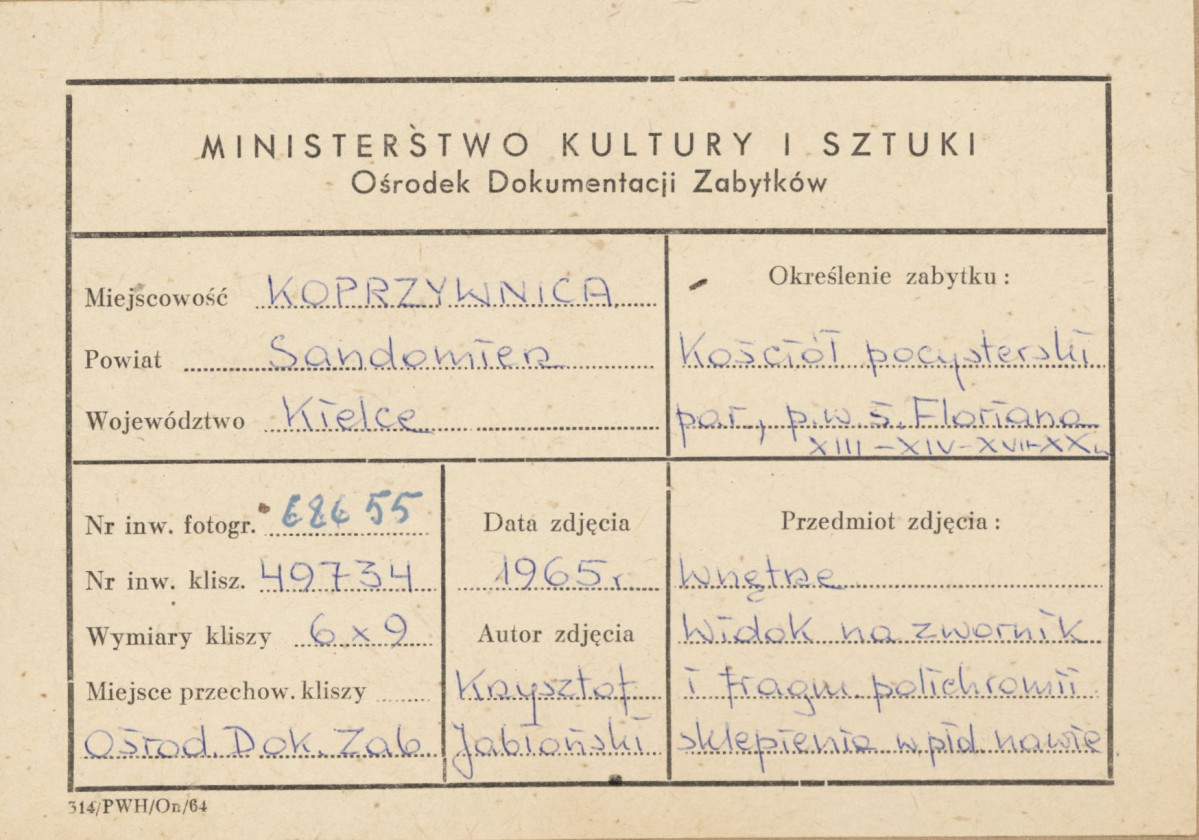 MINISTERSTWO KULTURY I SZTUKI
Ośrodek Dokumentacji Zabytków
Miejscowość KOPRZYWNICA
Powiat Sandomierz
Województwo Kielce
Określenie zabytku:
Kościół pocysterski
par., p.w. ś. Floriana
XIII-XIV-XVII-XX w
Nr inw. fotogr.
Nr inw. klisz. 49734
Wymiary kliszy 6x9
Miejsce przechow. kliszy
Ośrod. Dok. Zab
Data zdjęcia
1965 r.
Autor zdjęcia
Krzysztof
Jabłoński
Przedmiot zdjęcia:
Wnętrze
Widok na zwornik
i fragm. polichromii
sklepienia w płd nawie
314/PWH/On/64